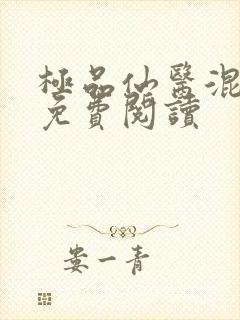 極品仙醫混
免費閱讀
婁一青